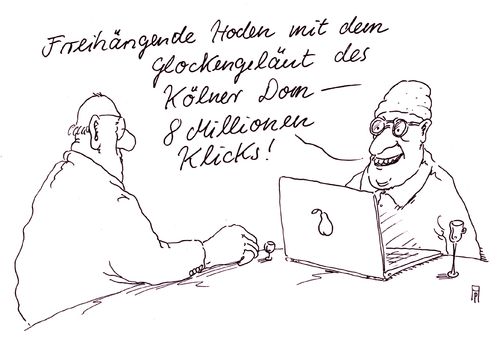 Freihängende Hoden mit dem
Glockengeläut des
Kölner Dom —
8 Millionen
Klicks!